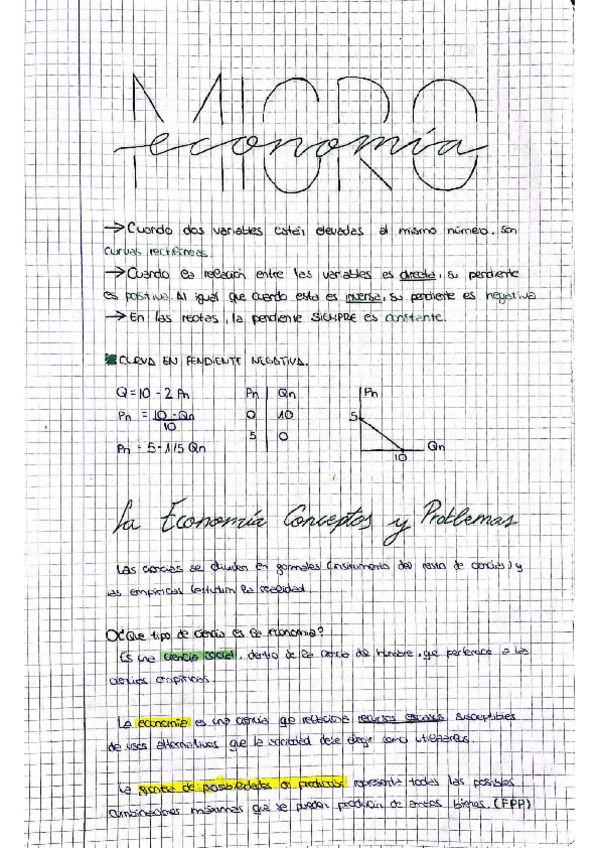 MICRO
economía
→ Cuando dos variables están elevadas al mismo número, son
curvas rectilíneas
→ Cuando la relación entre las variables es directa, su pendiente
es positiva. Al igual que cuando esta es inversa, su pendiente es negativa
→ En las rectas, la pendiente SIEMPRE es constante.
CURVA EN PENDIENTE NEGATIVA.
Q = 10 - 2 Pn
Pn = 10 - Qn
10
Pn = 5 - 1/5 Qn
Pn Qn
0 10
5 0
Pn
5
Qn
10
La Economía Conceptos y Problemas
Las ciencias se dividen en formales (instrumento del resto de ciencias) y
las empíricas (estudian la realidad).
¿Que tipo de ciencia es la economía?
Es una ciencia social, dentro de la ciencia del hombre, que pertenece a las
ciencias empíricas.
La economía es una ciencia que relaciona recursos escasos susceptibles
de usos alternativos que la sociedad debe elegir como utilizarlos.
La frontera de posibilidades de producción representa todas las posibles
combinaciones máximas que se pueden producir de ambos bienes. (FPP)